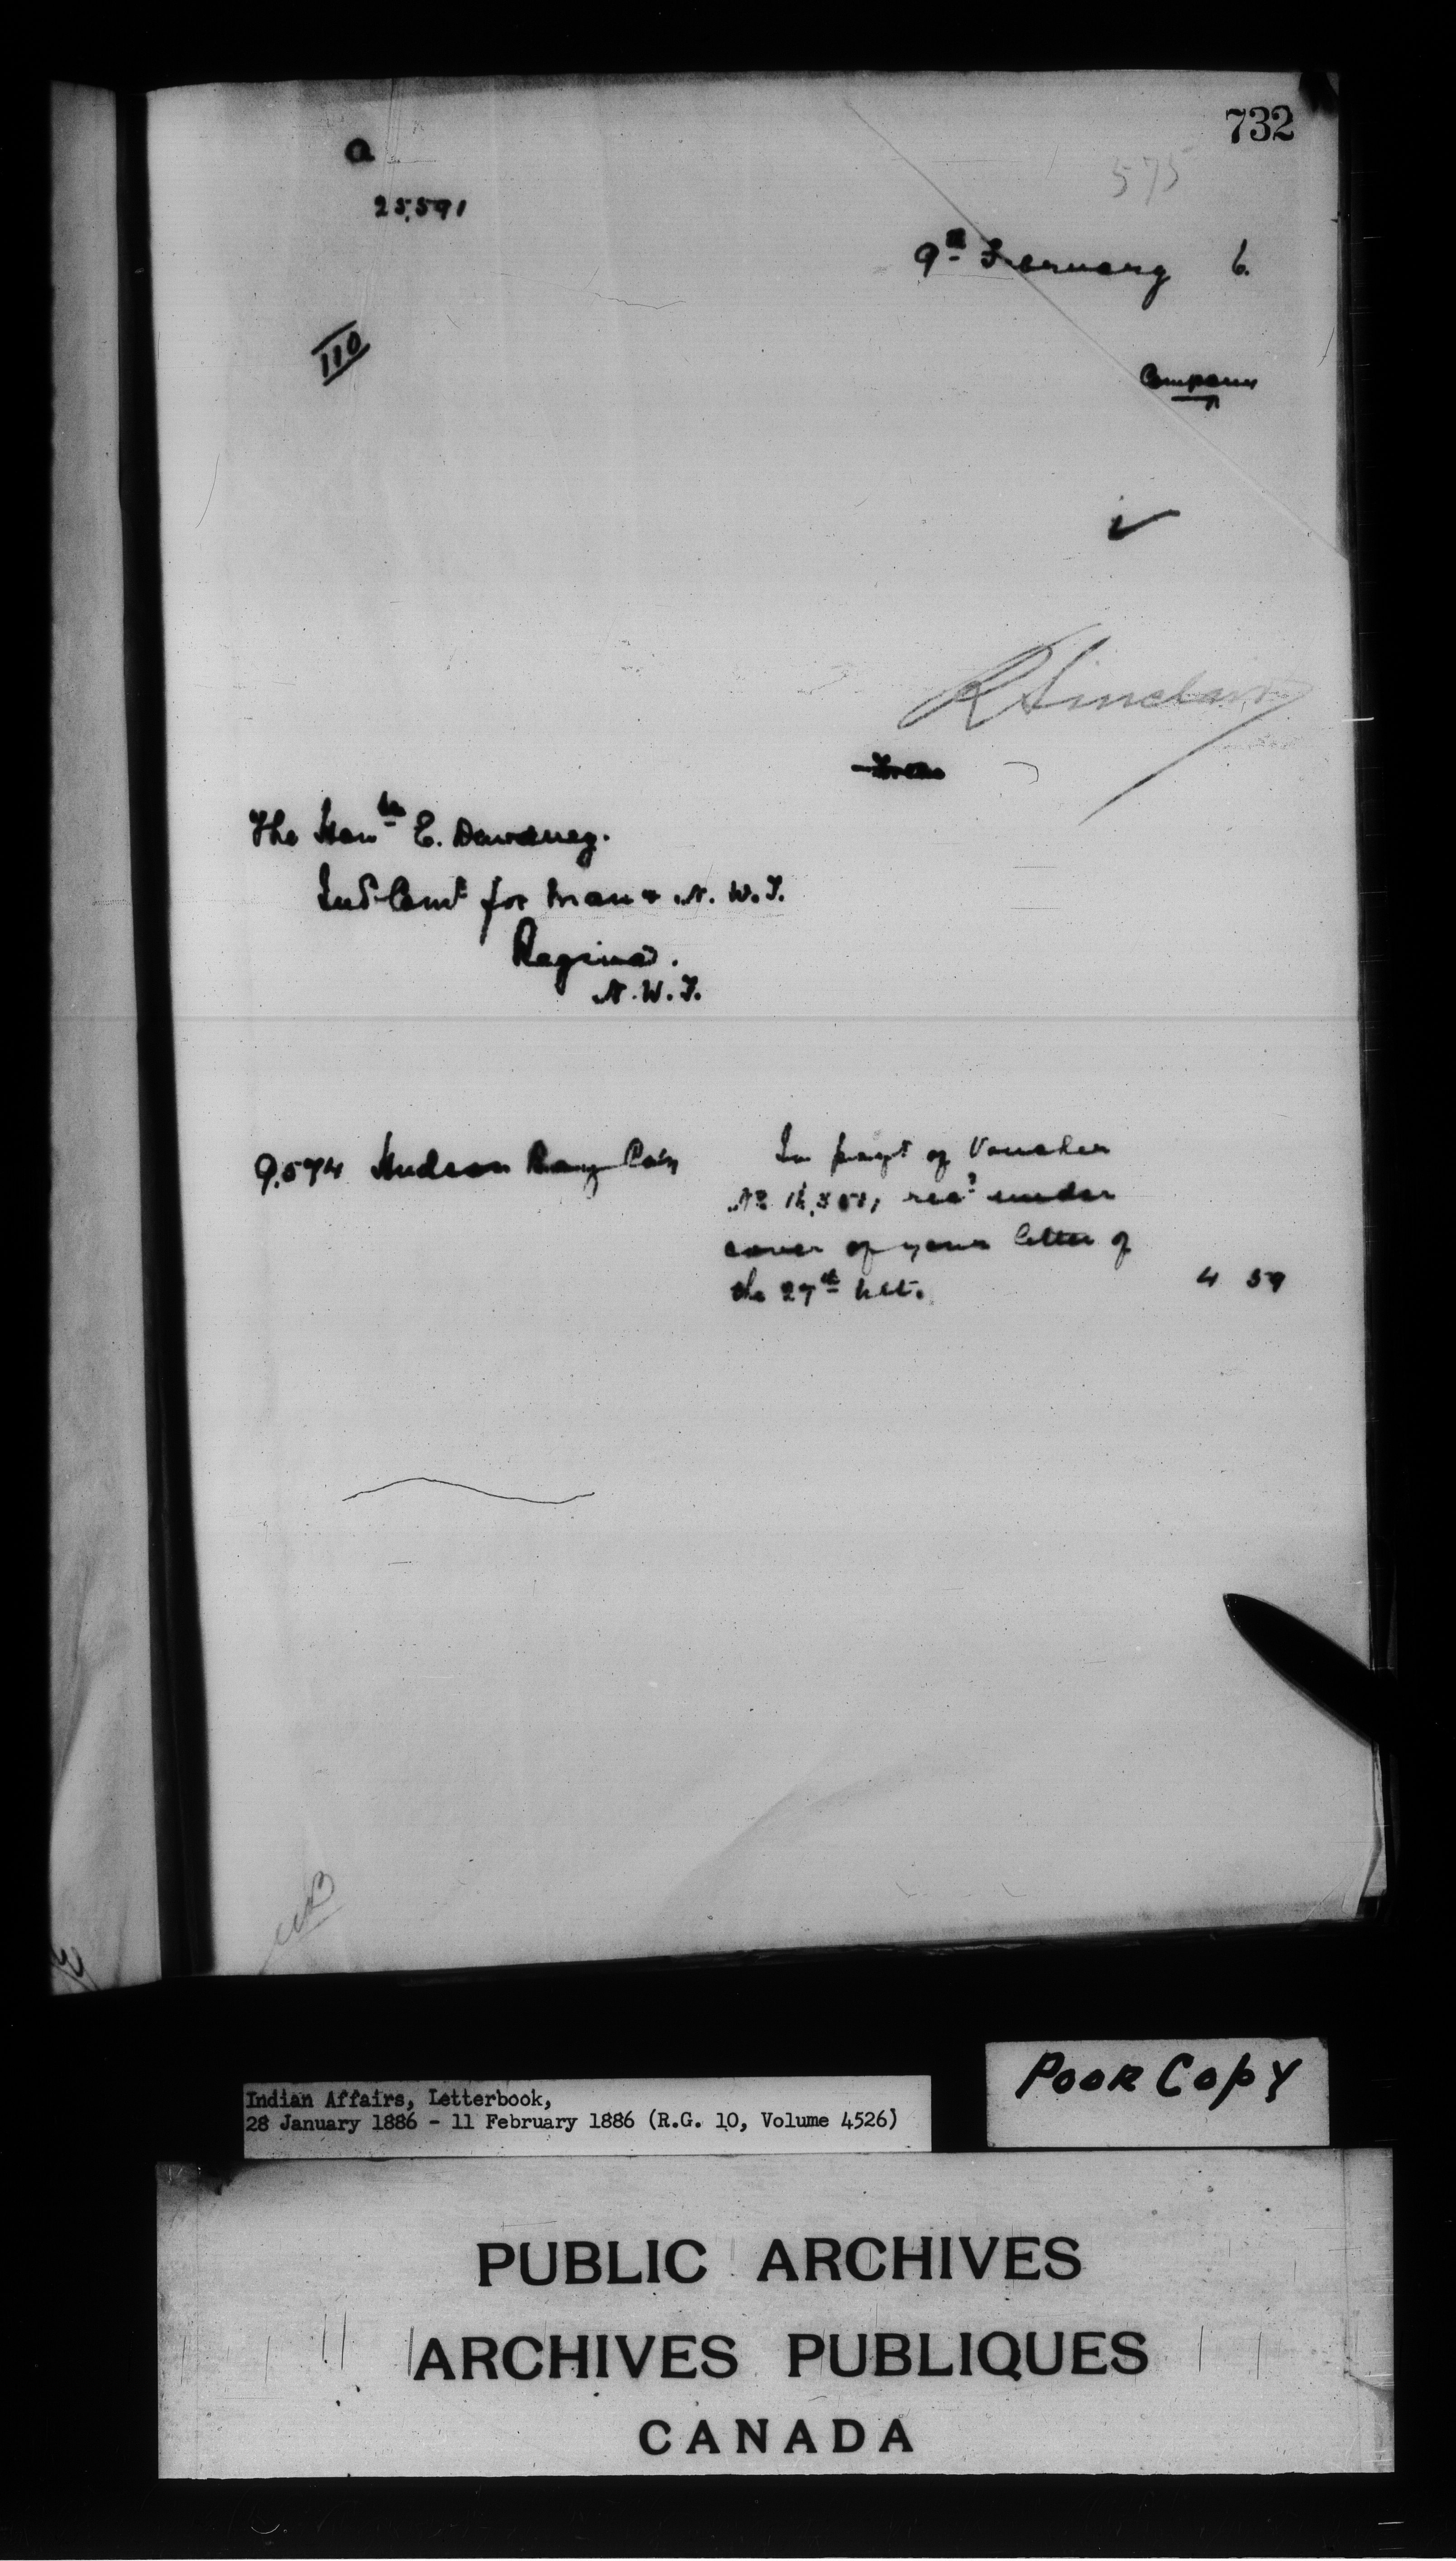 732
a
575
25,591
9th February 6.
110
Company
R Sinclair
The Honble E. Dewdney.
Ind Comr for Man & N. W. T.
Regina.
N. W. T.
9,574 Hudson Bay Coy
In payt of Voucher
No recd under
cover of your letter of
the 27th ult. 4 59
Indian Affairs, Letterbook,
28 January 1886 - 11 February 1886 (R.G. 10, Volume 4526)
POOR COPY
PUBLIC ARCHIVES
ARCHIVES PUBLIQUES
CANADA